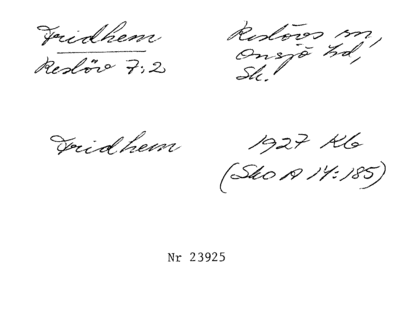 Fridhem
Reslöv 7:2
Reslövs sn,
Onsjö hd,
Sk.
Fridhem
1927 Kb
(Sko A 14:185)
Nr 23925